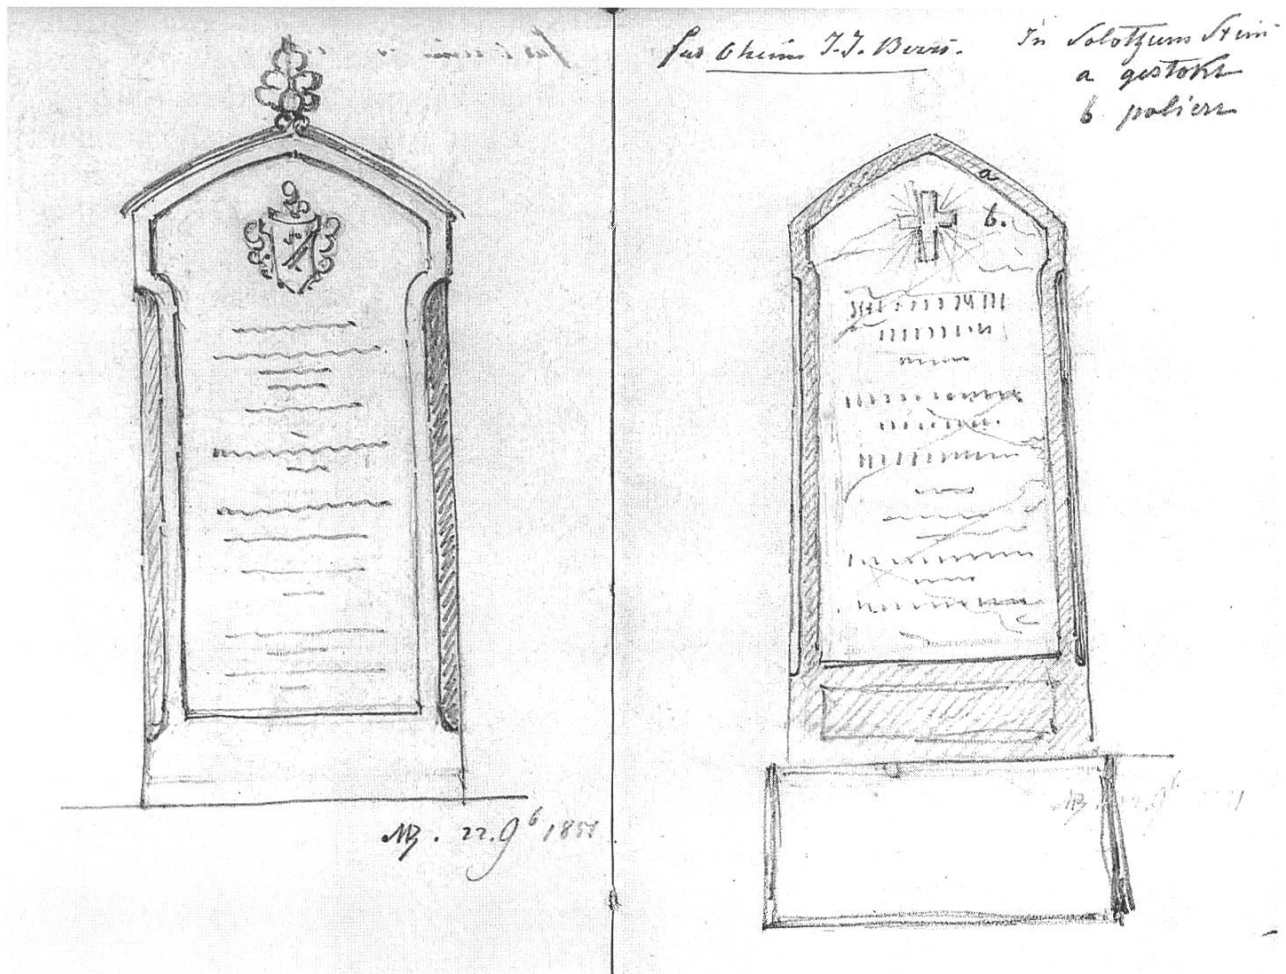 für Oheim J. J. Berri.
In Solothurn Stein
a gestokt
b poliert
a
b.
MB. 22. 9b 1851
MB 22. 9b